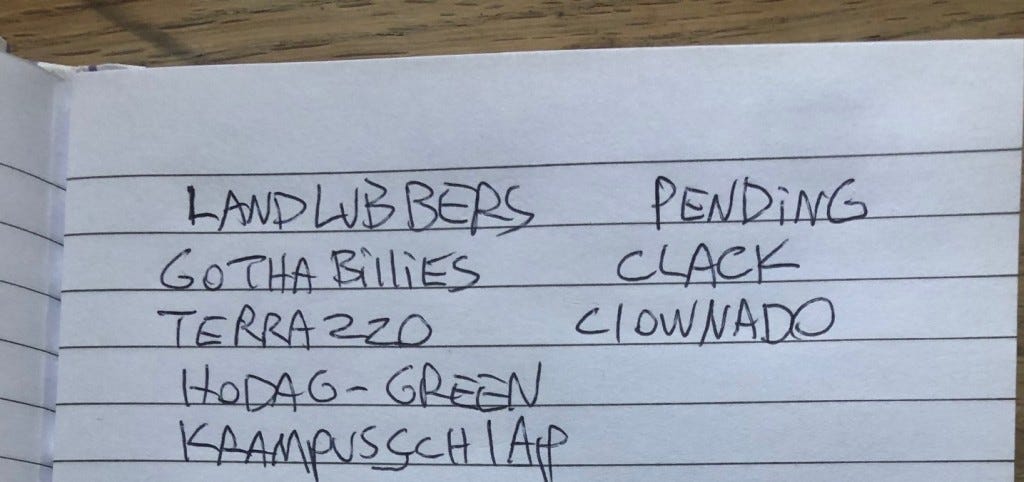 LANDLUBBERS PENDiNG
GOTHABilliES CLACK
TERRAZZO ClOWNADO
HODAG-GREEN
KRAMpUSSCHlApp